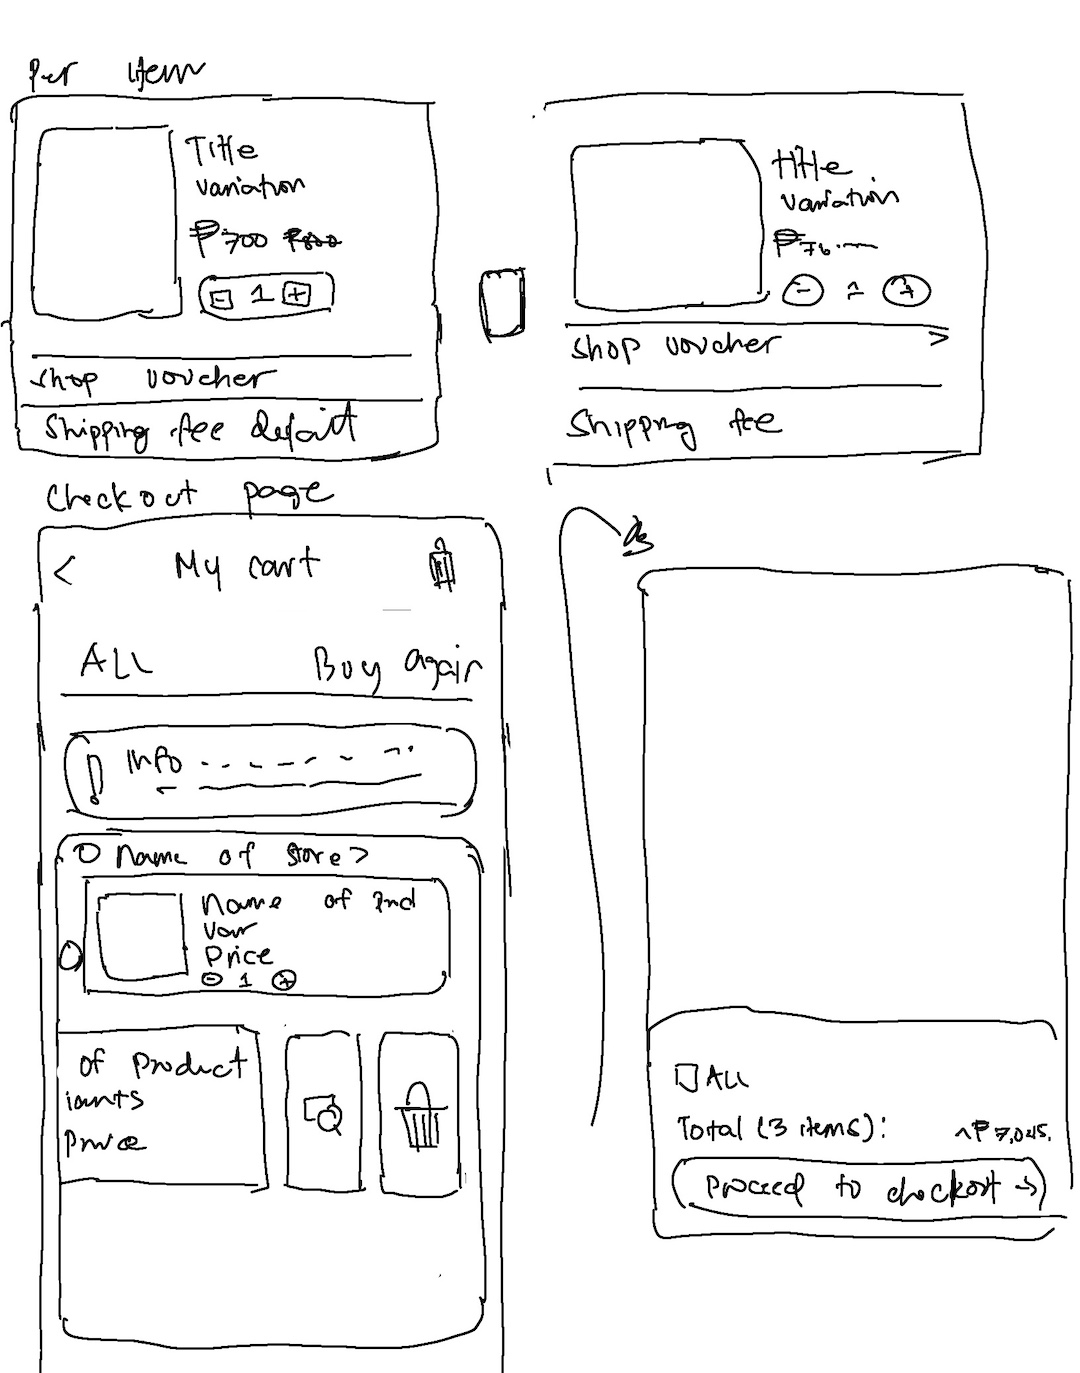 Per item
Title
variation
₱700 ₱800
- 1 +
shop voucher
Shipping fee
title
variation
- 1 +
shop voucher >
Shipping fee
Checkout page
< My cart
ALL Buy again
! Info
Name of store >
name of
Var
Price
- 1 +
of product
iants
price
ALL
Total (3 items): ^ ₱7,045.
Proceed to checkout →